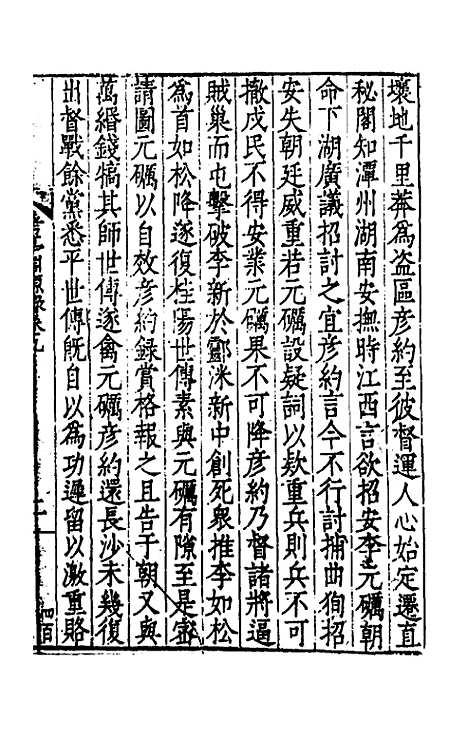 壤地千里莽為盗區彦約至彼督運人心始定遷直
秘閣知潭州湖南安撫時江西言欲招安李元礪朝
命下湖廣議招討之宜彦約言今不行討捕曲徇招
安失朝廷威重若元礪設疑詞以款重兵則兵不可
撤戍民不得安業元礪果不可降彦約乃督諸將逼
賊巢而屯擊破李新於酃洣新中創死衆推李如松
為首如松降遂復桂陽世傳素與元礪有隙至是密
請圖元礪以自效彦約録賞格報之且告于朝又與
萬緡錢犒其師世傳遂禽元礪彦約還長沙未幾復
出督戰餘黨悉平世傳既自以為功遲留以激重賂